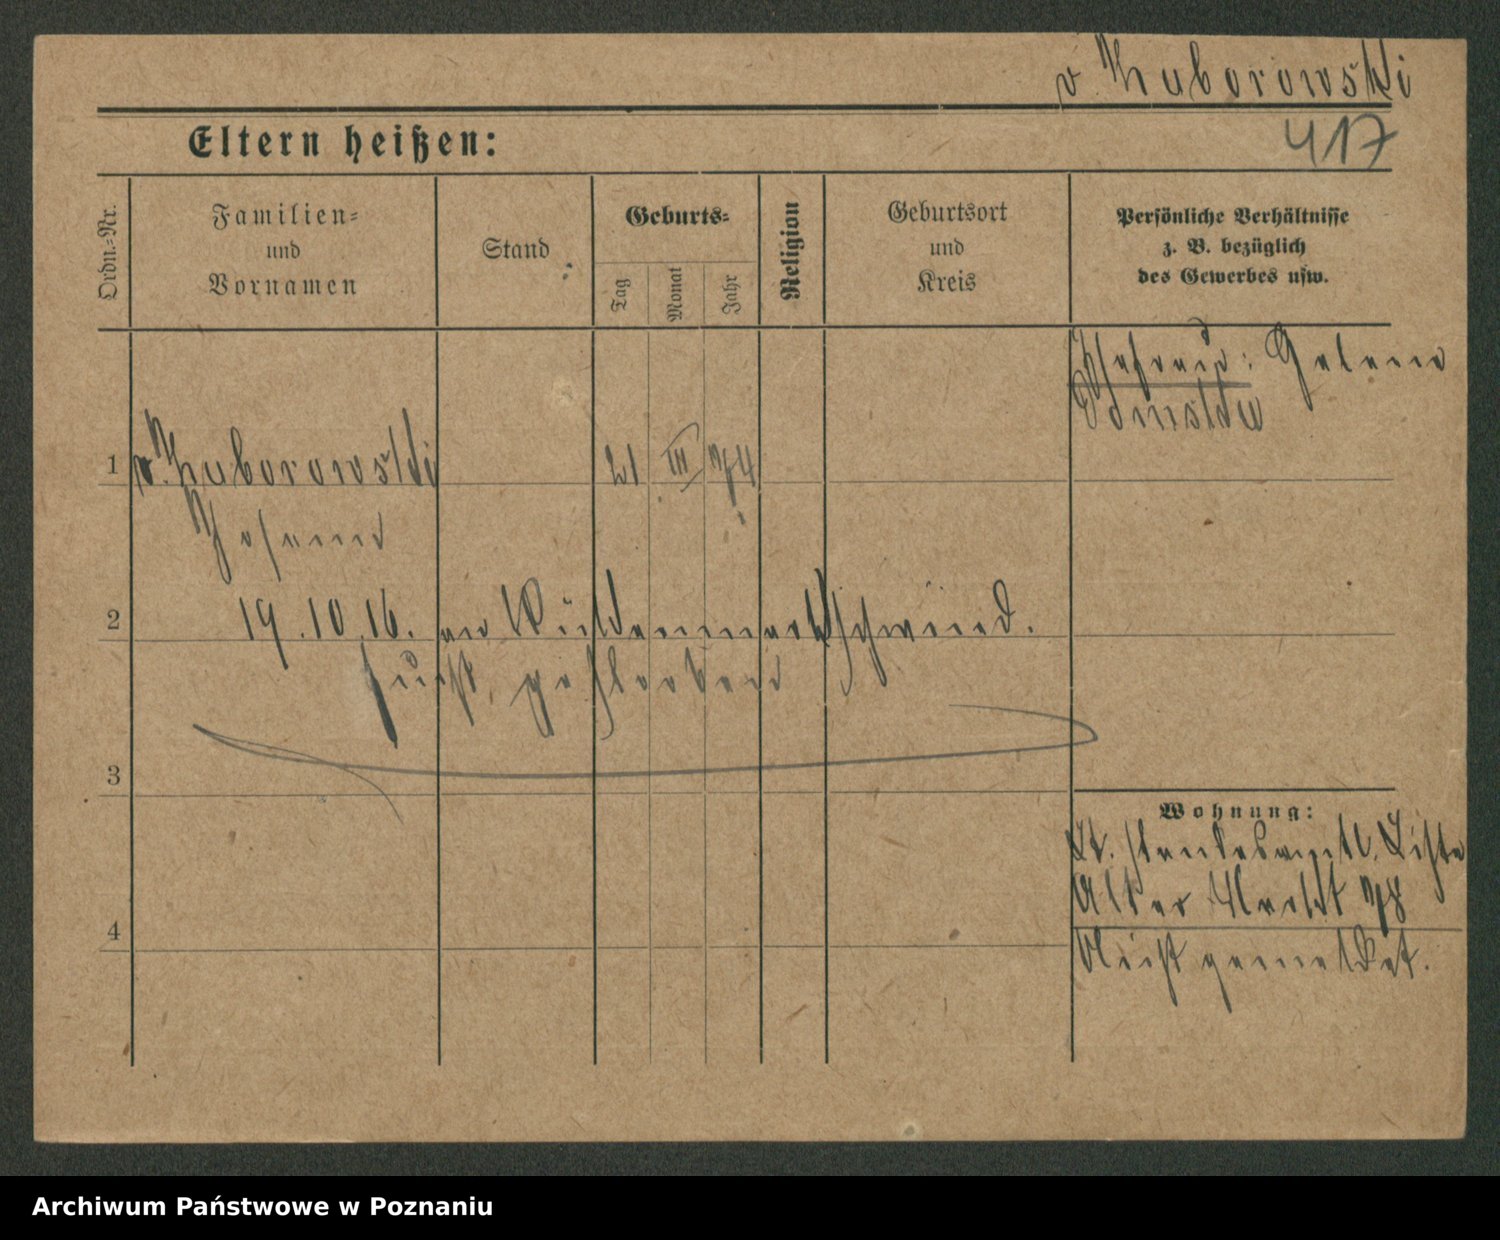 v. Zuborowski
417
Eltern heißen:
Ordn.=Nr.
Familien=
und
Vornamen
Stand
Geburts=
Tag
Monat
Jahr
Religion
Geburtsort
und
Kreis
Persönliche Verhältnisse
z. B. bezüglich
des Gewerbes usw.
Ehefrau:
1
v. Zuborowski
21 III 74
2
19.10.16. an
gestorben
3
Wohnung:
Lt. standesamtl. Liste
Alter Markt 78
4
Nicht gemeldet.
Archiwum Państwowe w Poznaniu